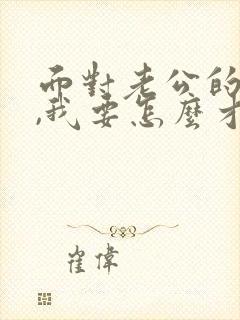 而對老公的
,我要怎麼才
崔偉